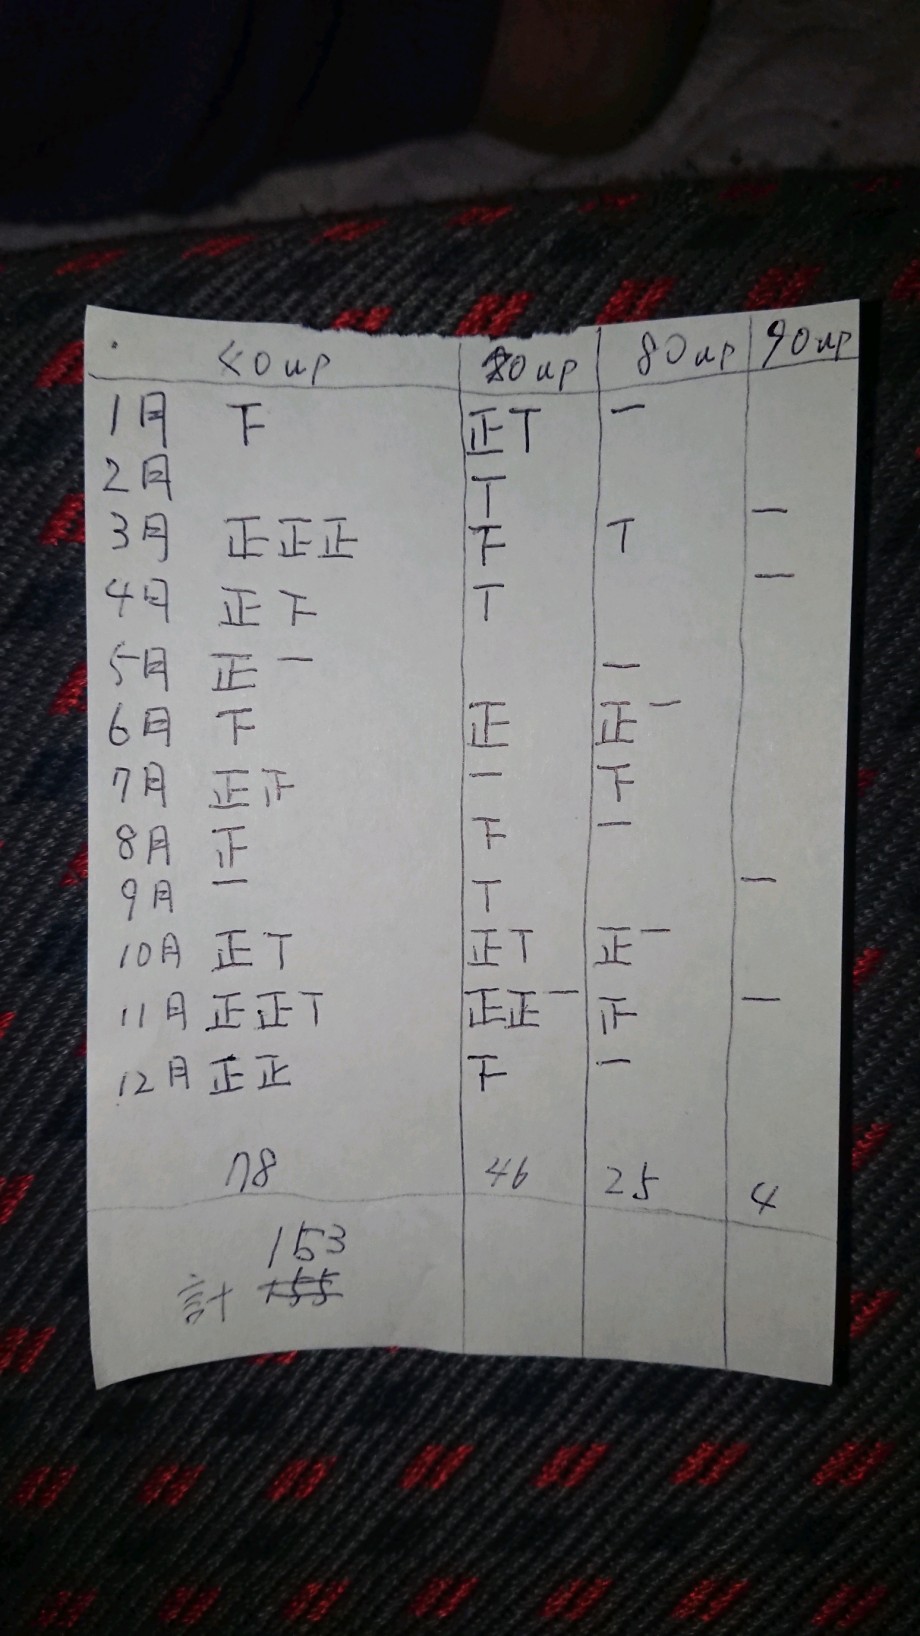 <0up 70up 80up 90up
1月 下 正T 一
2月 T
3月 正正正 下 T 一
4月 正下 T 一
5月 正一 一
6月 下 正 正一
7月 正正 一 下
8月 正 下 一
9月 一 T 一
10月 正T 正T 正一
11月 正正T 正正一 正 一
12月 正正 下 一
78 46 25 4
153
計 155